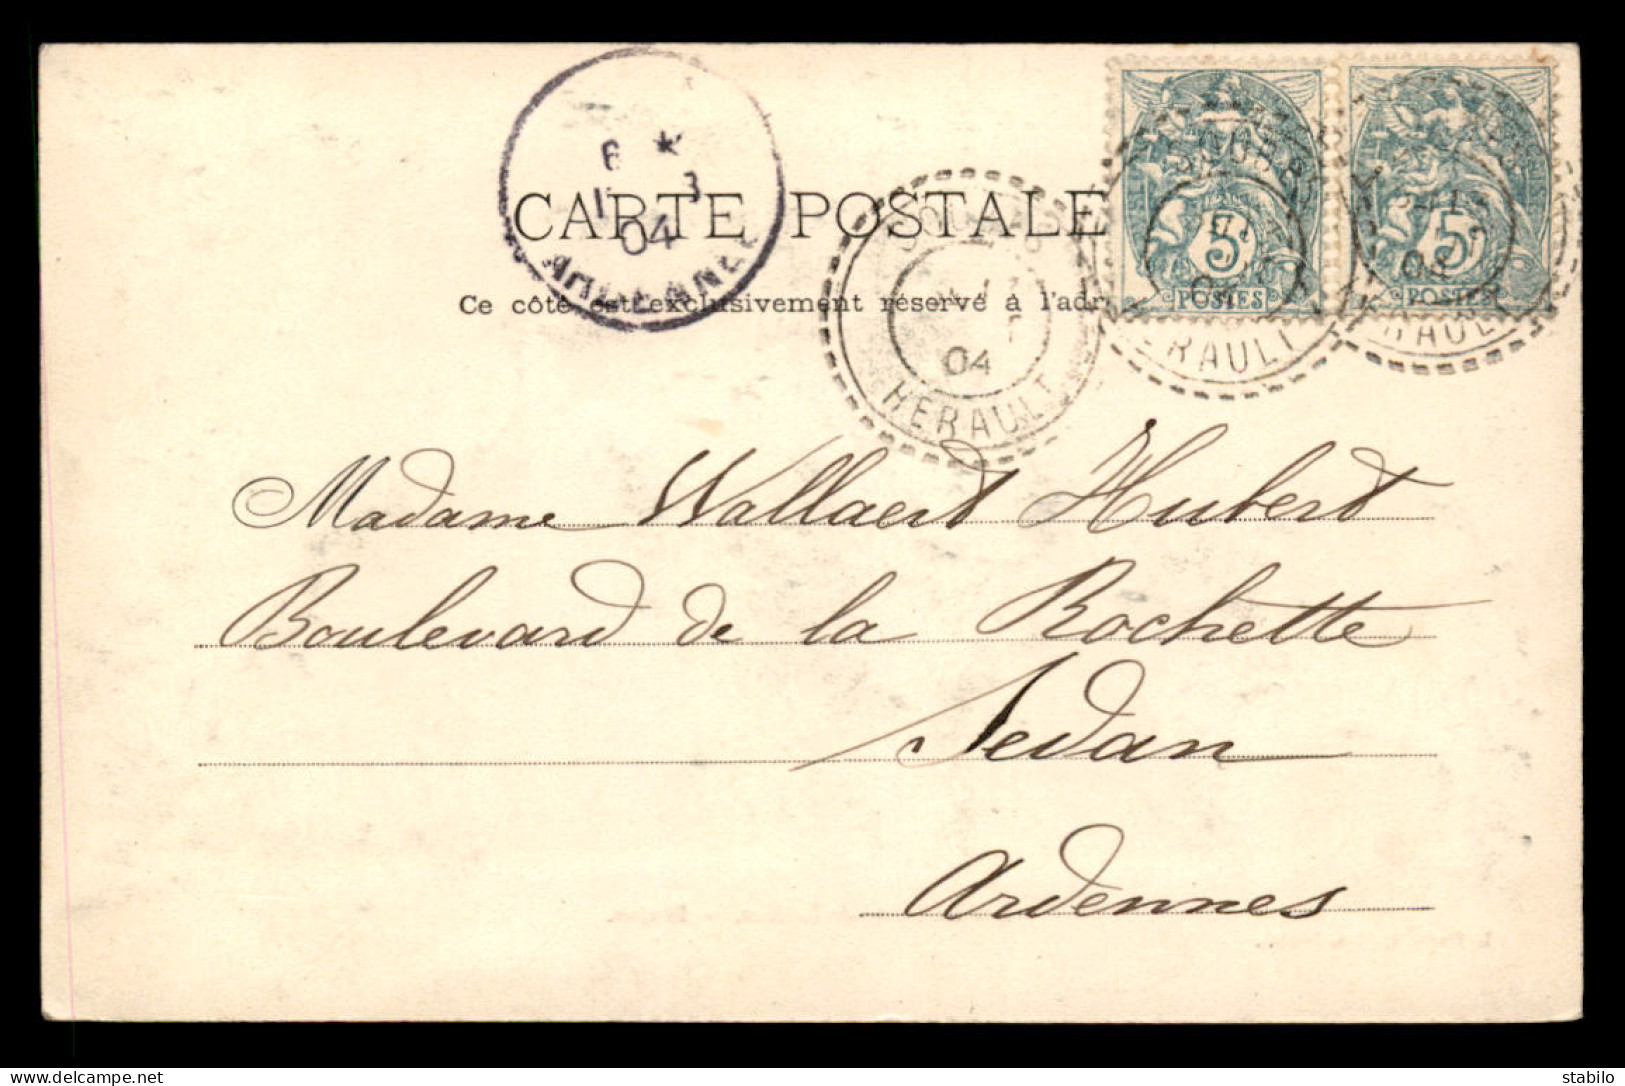 6 *
11 3
04
CARTE POSTALE
Ce côté est exclusivement réservé à l'adr
04
HERAULT
5
POSTES
04
HERAULT
5
POSTES
04
HERAULT
Madame Wallaert Hubert
Boulevard de la Rochette
Sedan
Ardennes
stabilo